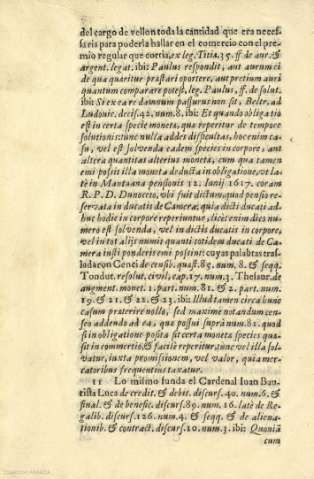 del cargo de vellon toda la cantidad que era neces-
saria para poderla hallar en el comercio con el pre-
mio regular que corria, ex leg. Titia. 35. ff. de aur. &
argent. legat. ibi: Paulus respondit, aut aurum ci
de qua quæritur præstari oportere, aut pretium auri
quantum comparare potest, leg. Paulus, ff. de solut.
ibi: Si ex ea re damnum passurus non sit, Beltr. ad
Ludouic. decis. 42. num. 8. ibi: Et quando obligatio
est in certa specie monetæ, quæ reperitur de tempore
solutionis: tunc nulla adest difficultas, hoc enim ca-
su, vel est solvenda eadem species in corpore, aut
altera quantitas alterius monetæ, cum qua tamen
emi possit illa moneta deducta in obligatione, vt la-
tè in Mantuana pensionis 12. Iunij 1617. coram
R. P. D. Dunoceto, vbi fuit dictum, quod pensio re-
servata in ducatis de Camera, quia dicti ducati ad-
huc hodie in corpore reperiuntur, licet enim dies nu-
mero est solvenda, vel in dictis ducatis in corpore,
vel in tot alijs numis quanti totidem ducati de Ca-
mera iusti ponderis emi possint: cuyas palabras tras-
lada con Genci de censib. quæst. 85. num. 8. & seqq.
Tondut. resolut. civil. cap. 17. num. 3. Thesaur. de
augment. monet. 1. part. num. 81. & 2. part. num.
19. & 21. & 22. & 23. ibi: Illud tamen circa hunc
casum præterire nollo, sed maximè notandum cen-
seo addendo ad ea, quæ posui suprà num. 81. quod
si in obligatione posita sit certa monetæ species quæ
sit in commertio, & facilè reperitur tunc vel illa sol-
vatur, iuxta promissionem, vel valor, qui a mer-
catoribus frequentius taxatur.
11 Lo mismo funda el Cardenal Iuan Bau-
tista Luca de credit. & debit. discurs. 40. num. 6. &
final. & de benefic. discurs. 89. num. 16. latè de Re-
galib. discurs. 126. num. 4. & seqq. & de aliena-
tionib. & contract. discurs. 10. num. 3. ibi: Quoniã
cum